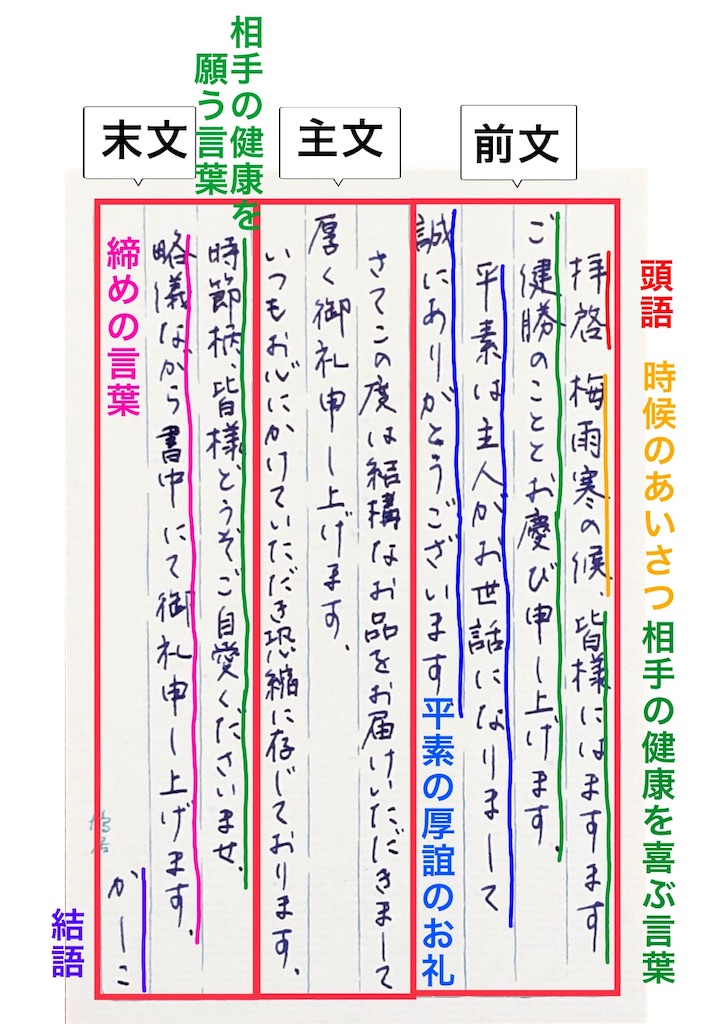 前文
主文
末文
頭語
時候のあいさつ
相手の健康を喜ぶ言葉
拝啓 梅雨寒の候、皆様にはますます
ご健勝のこととお慶び申し上げます。
平素は主人がお世話になりまして
誠にありがとうございます
平素の厚誼のお礼
さてこの度は結構なお品をお届けいただきまして
厚く御礼申し上げます。
いつもお心にかけていただき恐縮に存じております。
相手の健康を
願う言葉
時節柄、皆様どうぞご自愛くださいませ。
略儀ながら書中にて御礼申し上げます。
締めの言葉
かしこ
結語
鳩居